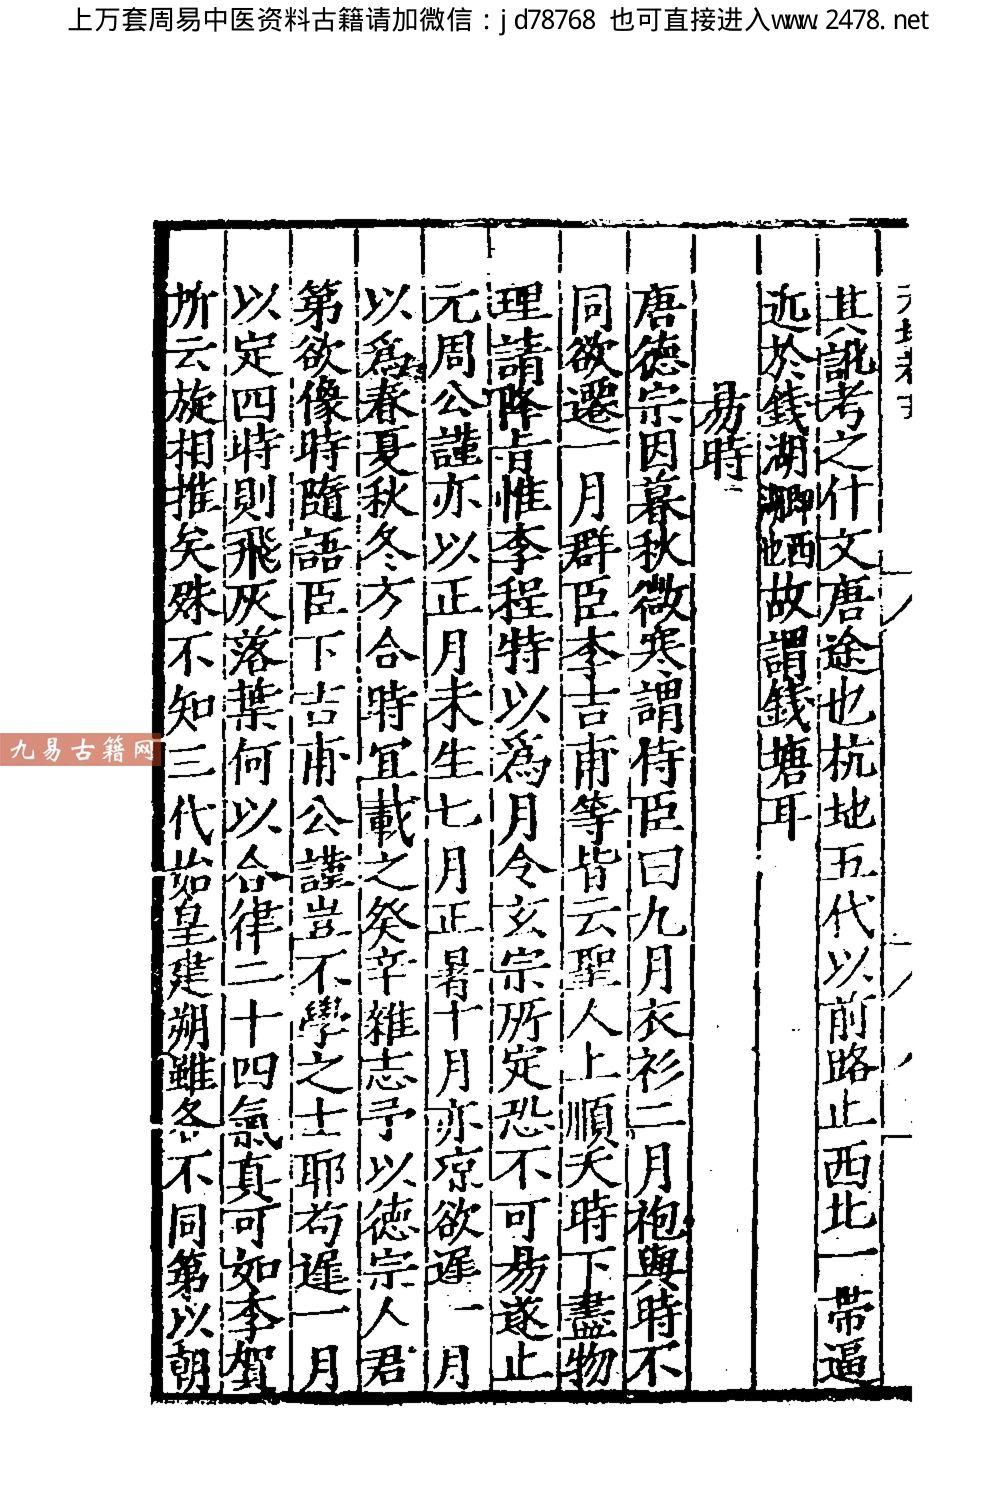 上万套周易中医资料古籍请加微信：jd78768 也可直接进入www.2478.net
其訛考之什文唐途也杭地五代以前路止西北一帶逼
近於錢湖湖卿西也故謂錢塘耳
易時
唐德宗因暮秋微寒謂侍臣曰九月衣衫二月袍與時不
同欲遷一月群臣李吉甫等皆云聖人上順天時下盡物
理請降旨惟李程特以為月令玄宗所定恐不可易遂止
元周公謹亦以正月未生七月正暑十月亦凉欲遲一月
以為春夏秋冬方合時宜載之癸辛雜志予以德宗人君
第欲像時隨語臣下吉甫公謹豈不學之士耶苟遲一月
以定四時則飛灰落葉何以合律二十四氣真可如李賀
所云旋相推矣殊不知三代始皇建朔雖各不同第以朝
九易古籍网